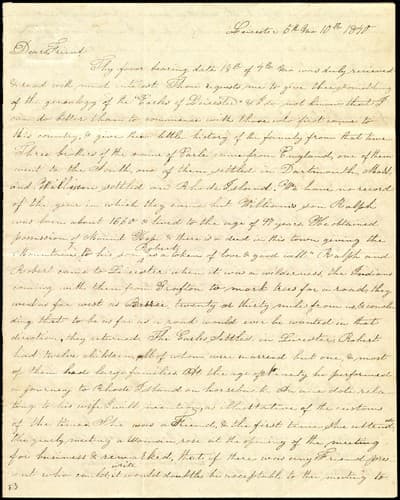 Leicester 5th Mo 10th 1840
Dear Friend
Thy favor bearing date 18th of 4th Mo was duly received
& read with much interest. Thou requests me to give thee something
of the genealogy of the "Earles of Leicester" & I do not know that I
can do better than to commence with those who first came to
this country, & give thee a little history of the family from that time
Three brothers of the name of Earle came from England, one of them
went to the South, one of them settled in Dartmouth, Mass.
and William settled on Rhode Island. We have no record
of the year in which they came but William's son Ralph
was born about 1660 & lived to the age of 97 years. He obtained
possession of Mount Hope & there is a deed in this town giving the
Mountain to his son Robert "as a token of love & good will." Ralph and
Robert came to Leicester when it was a wilderness, the Indians
coming with them from Grafton to mark trees for a road, they
went as far west as twenty or thirty miles from us & conclu
ding that to be as far as a road would ever be wanted in that
direction, they returned. The Earles settled in Leicester. Robert
had twelve children, all of whom were married but one, & most
of them had large families. At the age of he performed
a journey to Rhode Island on horseback. An anecdote rela
ting to his wife I will mention, as illustrative of the customs
of the times. She was a Friend, & the first time she attended
the yearly meeting a woman rose at the opening of the meeting
for business & remarked, that if there was any Friend pres
ent who could write it would doubtless be acceptable to the meeting to
83